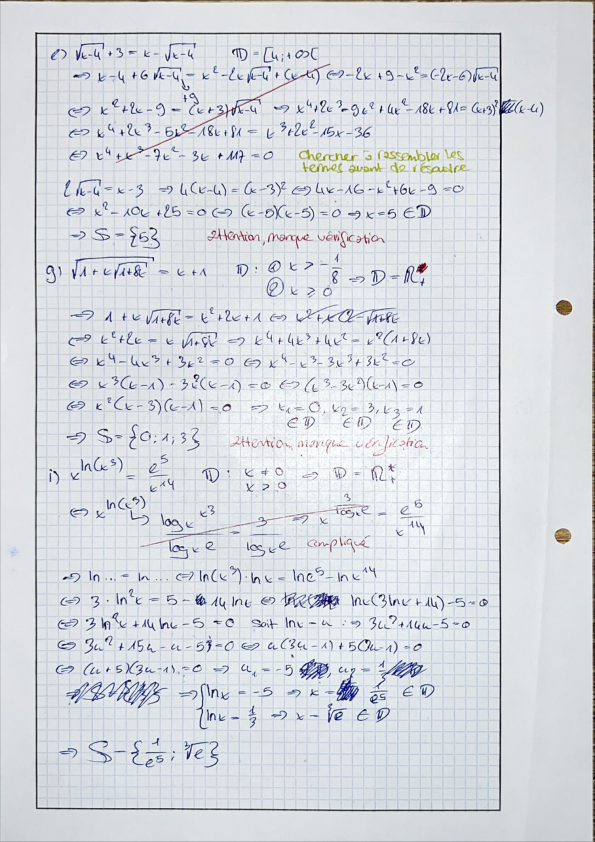 e) √(x-4) + 3 = x - √(x-4)    D = [4; +∞[
⇒ x-4 + 6√(x-4) +9 = x² - 2x√(x-4) + (x-4) ⇔ -2x + 9 - x² = (-2x-6)√(x-4)
⇔ x² + 2x - 9 = (x+3)√(x-4) ⇒ x⁴ + 2x³ - 9x² + 4x² - 18x + 81 = (x+3)²(x-4)
⇔ x⁴ + 2x³ - 5x² - 18x + 81 = x³ + 2x² - 15x - 36
⇔ x⁴ + x³ - 7x² - 3x + 117 = 0
Chercher à rassembler les
termes avant de résoudre
2√(x-4) = x-3 ⇒ 4(x-4) = (x-3)² ⇔ 4x-16-x²+6x-9 = 0
⇔ x² - 10x + 25 = 0 ⇔ (x-5)(x-5) = 0 ⇒ x = 5 ∈ D
⇒ S = {5}    Attention, manque vérification
g) √(1 + x√(1+8x)) = x+1    D : ① x > -1/8
② x ≥ 0 ⇒ D = R₊
⇒ 1 + x√(1+8x) = x² + 2x + 1 ⇔
⇔ x² + 2x = x√(1+8x) ⇒ x⁴ + 4x³ + 4x² = x²(1+8x)
⇔ x⁴ - 4x³ + 3x² = 0 ⇔ x⁴ - x³ - 3x³ + 3x² = 0
⇔ x³(x-1) - 3x²(x-1) = 0 ⇔ (x³-3x²)(x-1) = 0
⇔ x²(x-3)(x-1) = 0 ⇒ x₁ = 0, x₂ = 3, x₃ = 1
∈ D  ∈ D  ∈ D
⇒ S = {0; 1; 3}    Attention, manque vérification
i) x^(ln(x³)) = e⁵/x¹⁴    D : x ≠ 0
x > 0 ⇒ D = R₊*
⇔ x^(ln(x³)) ↳ logₓ x³ / logₓ e = 3 / logₓ e ⇒ x^(3/logₓ e) = e⁵/x¹⁴
compliqué
⇒ ln ... = ln ... ⇔ ln(x³) · ln x = ln e⁵ - ln x¹⁴
⇔ 3 · ln²x = 5 - 14 ln x ⇔ ln x(3 ln x + 14) - 5 = 0
⇔ 3 ln²x + 14 ln x - 5 = 0  Soit ln x = u : ⇒ 3u² + 14u - 5 = 0
⇔ 3u² + 15u - u - 5 = 0 ⇔ u(3u-1) + 5(3u-1) = 0
⇔ (u+5)(3u-1) = 0 ⇒ u₁ = -5, u₂ = 1/3
⇒ { ln x = -5 ⇒ x = 1/e⁵ ∈ D
ln x = 1/3 ⇒ x = ³√e ∈ D
⇒ S = {1/e⁵; ³√e}